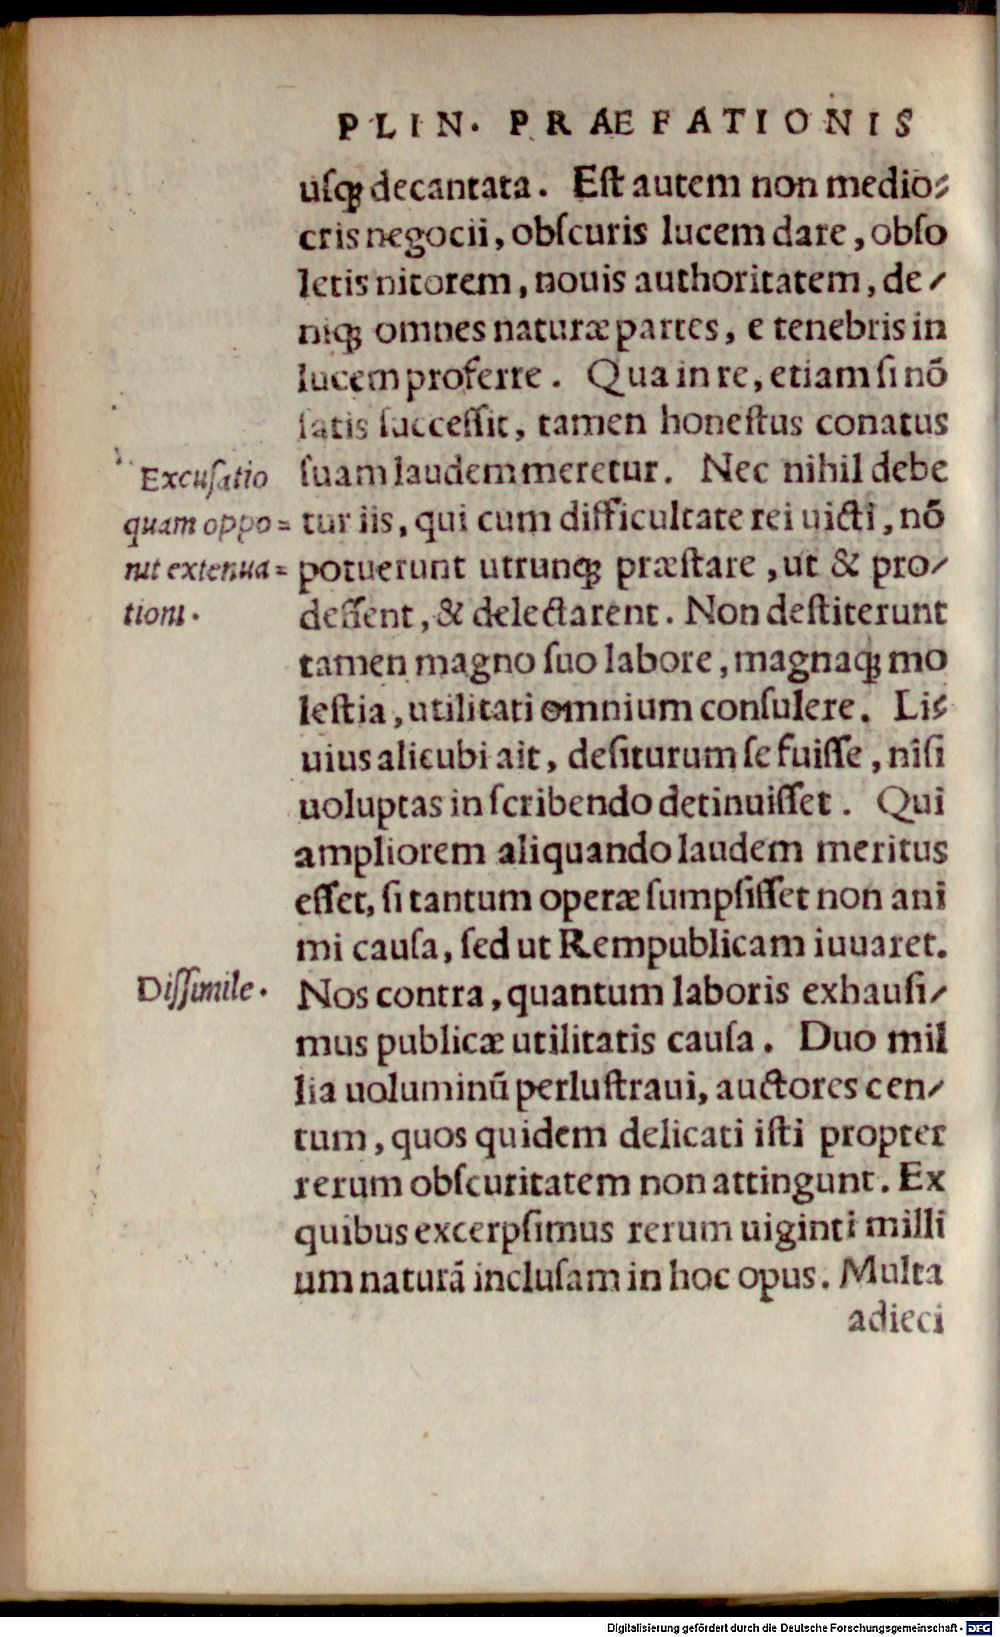 PLIN. PRÆFATIONIS
uſqꝫ decantata. Eſt autem non medio⸗
cris negocii, obſcuris lucem dare, obſo
letis nitorem, nouis authoritatem, de/
niqꝫ omnes naturæ partes, e tenebris in
lucem proferre. Qua in re, etiam ſi nō
ſatis ſucceſſit, tamen honeſtus conatus
ſuam laudem meretur. Nec nihil debe
tur iis, qui cum difficultate rei uicti, nō
potuerunt utrunqꝫ præſtare, ut & pro/
deſſent, & delectarent. Non deſtiterunt
tamen magno ſuo labore, magnaqꝫ mo
leſtia, utilitati omnium conſulere. Li⸗
uius alicubi ait, deſiturum ſe fuiſſe, niſi
uoluptas in ſcribendo detinuiſſet. Qui
ampliorem aliquando laudem meritus
eſſet, ſi tantum operæ ſumpſiſſet non ani
mi cauſa, ſed ut Rempublicam iuuaret.
Nos contra, quantum laboris exhauſi/
mus publicæ utilitatis cauſa. Duo mil
lia uoluminū perluſtraui, auctores cen/
tum, quos quidem delicati iſti propter
rerum obſcuritatem non attingunt. Ex
quibus excerpſimus rerum uiginti milli
um naturā incluſam in hoc opus. Multa
adieci
Excuſatio
quam oppo⸗
nit extenua⸗
tioni.
Diſſimile.
Digitalisierung gefördert durch die Deutsche Forschungsgemeinschaft - DFG